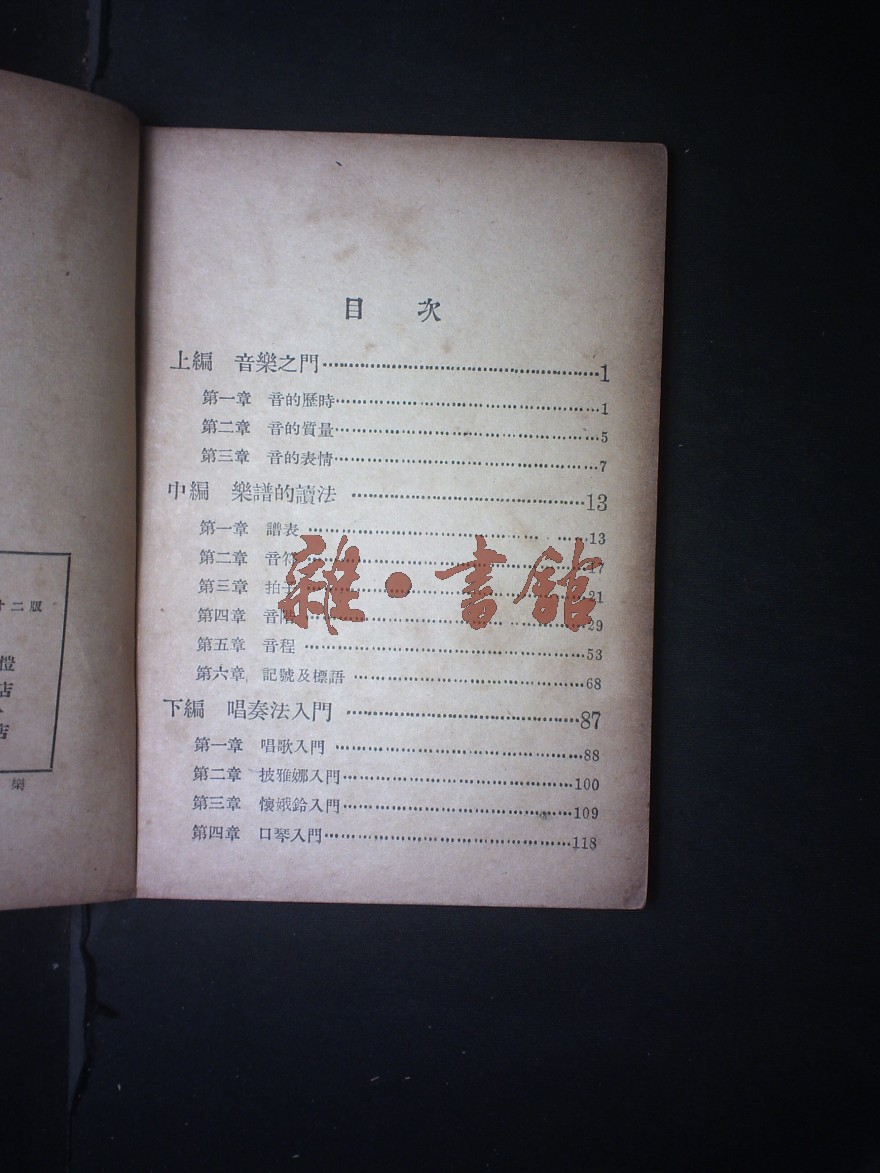 目 次
上編 音樂之門……1
第一章 音的歷時……1
第二章 音的質量……5
第三章 音的表情……7
中編 樂譜的讀法……13
第一章 譜表……13
第二章 音符……17
第三章 拍子……21
第四章 音階……29
第五章 音程……53
第六章 記號及標語……68
下編 唱奏法入門……87
第一章 唱歌入門……88
第二章 披雅娜入門……100
第三章 懷娥鈴入門……109
第四章 口琴入門……118
雜·書館
二版
愷
店
店
樂